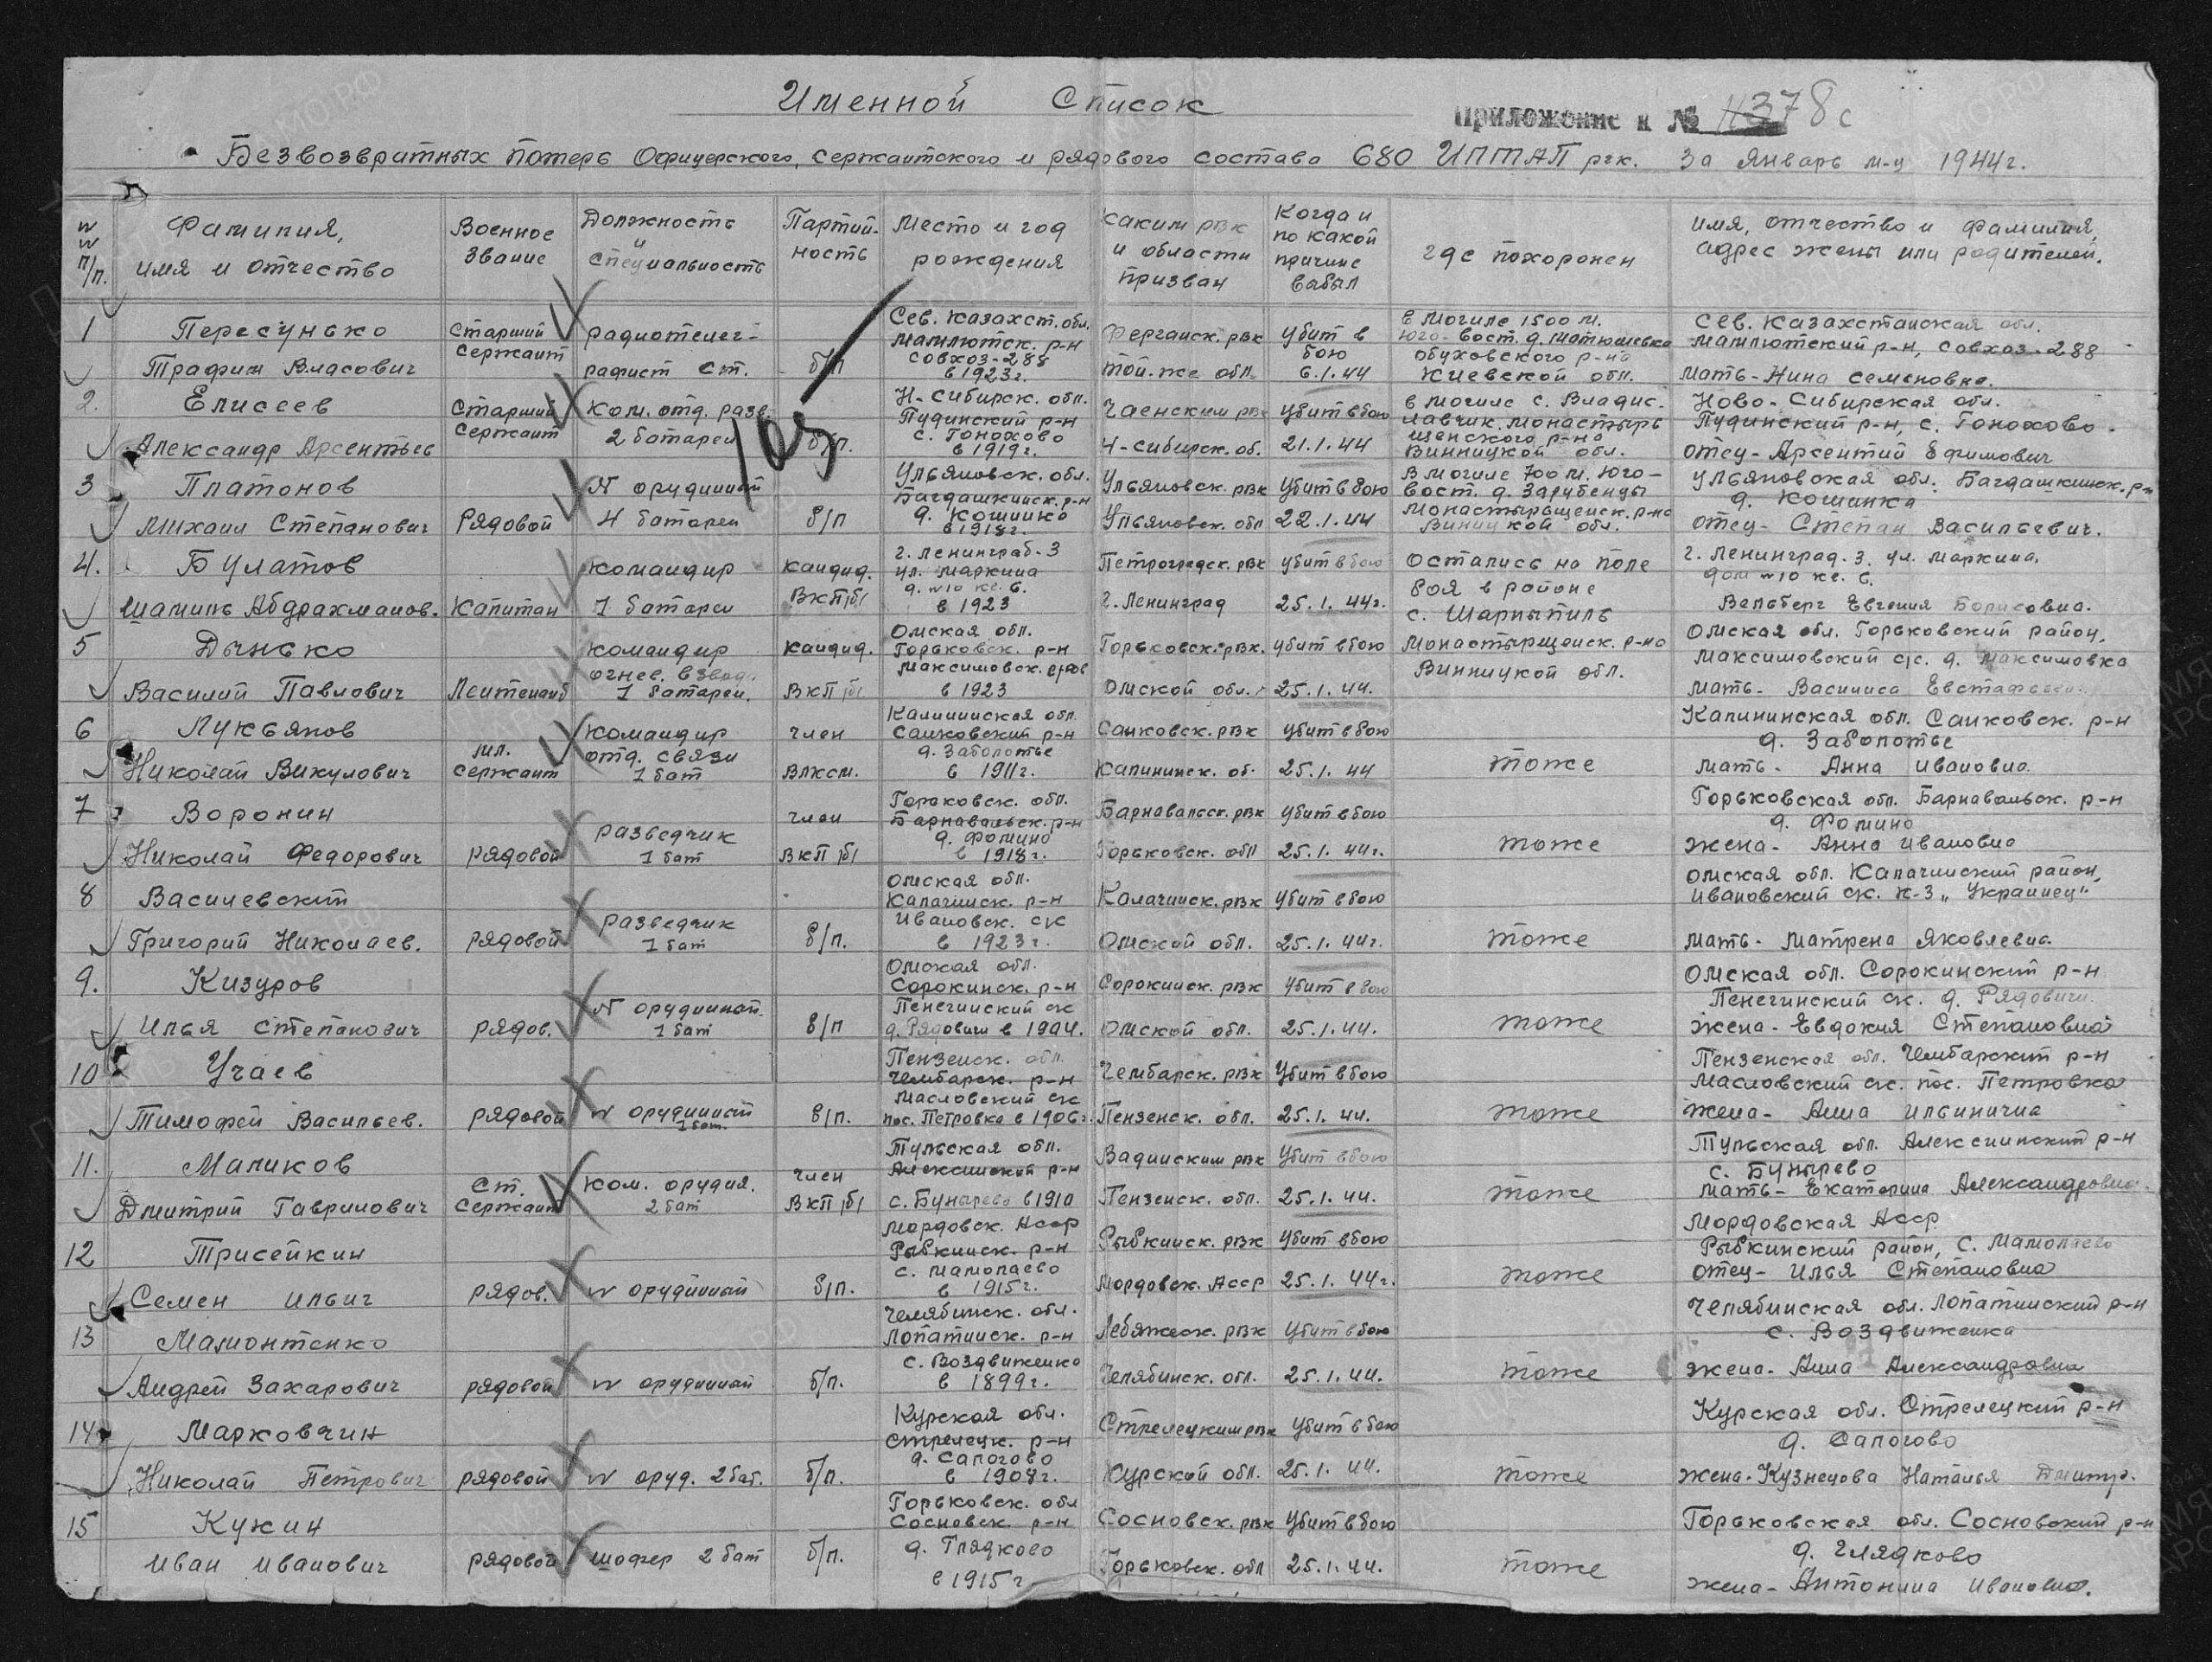 Именной Список
Приложение к № 4378с
Безвозвратных потерь Офицерского, сержантского и рядового состава 680 ИПТАП ргк. За Январь м-ц 1944г.
№ № п/п.
Фамилия, имя и отчество
Военное звание
Должность и специальность
Партийность
Место и год рождения
Каким рвк и области призван
Когда и по какой причине выбыл
Где похоронен
Имя, отчество и фамилия, адрес жены или родителей.
1
Пересунько
Трафим Власович
Старший Сержант
радиотелег-
рафист ст.
б/п
Сев. Казахст. обл.
Мамлютск. р-н
совхоз-288
в 1923г.
Ферганск. рвк
той-же обл.
Убит в бою
6.1.44
В могиле 1500 м.
юго-вост. д. Матюшевка
обуховского р-на
Киевской обл.
Сев. Казахстанская обл.
Мамлютский р-н, совхоз-288
Мать-Нина Семеновна.
2.
Елисеев
Александр Арсентьев
Старший Сержант
Ком. отд. разв.
2 батареи
б/п.
Н-Сибирск. обл.
Пудинский р-н
с. Гонохово
в 1919г.
Чаенским рвк
Н-Сибирск. об.
Убит в бою
21.1.44
в могиле с. Владис-
лавчик, Монастыр
щенского р-на
Винницкой обл.
Ново-Сибирская обл.
Пудинский р-н, с. Гонохово.
отец-Арсентий Ефимович
3
Платонов
Михаил Степанович
Рядовой
№ орудийный
4 батареи
б/п
Ульяновск. обл.
Багдашкинск. р-н
д. Кошинка
в 1918г.
Ульяновск. рвк
Ульяновск. обл
Убит в бою
22.1.44
В могиле 700 м. юго-
вост. д. Зарубенцы
Монастырщенск. р-на
Виницкой обл.
Ульяновская обл. Багдашкинск. р-н
д. Кошинка
отец-Степан Васильевич.
4.
Булатов
Шамиль Абдрахманов.
Капитан
Командир
1 батареи
кандид.
ВКП/б/
г. Ленинград-3
ул. Маркина
д. №10 кв. 6.
в 1923
Петроградск. рвк
г. Ленинград
убит в бою
25.1.44г.
Остались на поле
боя в районе
с. Шарныпиль
Монастырщенск. р-на
Винницкой обл.
г. Ленинград-3. ул. Маркина.
дом №10 кв. 6.
Вельберг Евгения Борисовна.
5
Дынько
Василий Павлович
Лейтенант
Командир
огнев. взвод.
1 батареи.
кандид.
ВКП/б/
Омская обл.
Горьковск. р-н
в 1923
Горьковск. рвк.
Омской обл.
убит в бою
25.1.44.
Омская обл. Горьковский район,
Максимовский с/с. д. Максимовка
Мать-Василиса
6
Лукьянов
Николай Викулович
мл. сержант
Командир
отд. связи
1 бат
член
ВЛКСМ.
Калининская обл.
Санковский р-н
д. Заболотье
в 1911г.
Санковск. рвк
Калининск. об.
Убит в бою
25.1.44
тоже
Калининская обл. Санковск. р-н
д. Заболотье
Мать-Анна Ивановна
7
Воронин
Николай Федорович
рядовой
разведчик
1 бат
член
ВКП/б/
Горьковск. обл.
Барнавальск. р-н
д. Фомино
в 1918г.
Барнавальск. рвк
Горьковск. обл
Убит в бою
25.1.44г.
тоже
Горьковская обл. Барнавальск. р-н
д. Фомино
жена-Анна Ивановна
8
Василевский
Григорий Николаев.
рядовой
разведчик
1 бат
б/п.
Омская обл.
Калачинск. р-н
Ивановск. с/с
в 1923г.
Калачинск. рвк
Омской обл.
Убит в бою
25.1.44г.
тоже
Омская обл. Калачинский район,
Ивановский с/с. к-з „Украинец"
Мать-Матрена Яковлевна.
9.
Кизуров
Илья Степанович
рядов.
№ орудийный.
1 бат
б/п
Омская обл.
Сорокинск. р-н
Пенегинский с/с
д. Рядовичи в 1904.
Сорокинск. рвк
Омской обл.
Убит в бою
25.1.44.
тоже
Омская обл. Сорокинский р-н
Пенегинский с/с. д. Рядовичи.
жена-Евдокия Степановна
10
Учаев
Тимофей Васильев.
рядовой
№ орудийный
1 бат.
б/п.
Пензенск. обл.
Чембарск. р-н
Масловский с/с
пос. Петровка в 1906г.
Чембарск. рвк
Пензенск. обл.
Убит в бою
25.1.44.
тоже
Пензенская обл. Чембарский р-н
Масловский с/с. пос. Петровка
жена-Анна Ильинична
11.
Маликов
Дмитрий Гаврилович
Ст. Сержант
Ком. орудия.
2 бат
член
ВКП/б/
Тульская обл.
Алексинский р-н
с. Бунырево в 1910
Вадинским рвк
Пензенск. обл.
Убит в бою
25.1.44.
тоже
Тульская обл. Алексинский р-н
с. Бунырево
мать-Екатерина Александровна.
12
Трисейкин
Семен Ильич
рядов.
№ орудийный
б/п.
Мордовск. Асср
Рыбкинск. р-н
с. Мамолаево
в 1915г.
Рыбкинск. рвк
Мордовск. Асср
Убит в бою
25.1.44г.
тоже
Мордовская Асср
Рыбкинский район, с. Мамолаево
отец-Илья Степановна
13
Мамонтенко
Андрей Захарович
рядовой
№ орудийный
б/п.
Челябинск. обл.
Лопатинск. р-н
с. Воздвиженка
в 1899г.
Лебяжск. рвк
Челябинск. обл.
Убит в бою
25.1.44.
тоже
Челябинская обл. Лопатинский р-н
с. Воздвиженка
жена-Анна Александровна
14
Марковчин
Николай Петрович
рядовой
№ оруд. 2 бат.
б/п.
Курская обл.
Стрелецк. р-н
д. Сапогово
в 1908г.
Стрелецким рвк
Курской обл.
Убит в бою
25.1.44.
тоже
Курская обл. Стрелецкий р-н
д. Сапогово
жена-Кузнецова Наталья Дмитр.
15
Кужин
Иван Иванович
рядовой
шофер 2 бат
б/п.
Горьковск. обл
Сосновск. р-н
д. Глядково
в 1915г
Сосновск. рвк
Горьковск. обл
Убит в бою
25.1.44.
тоже
Горьковская обл. Сосновский р-н
д. Глядково
жена-Антонина Ивановна.